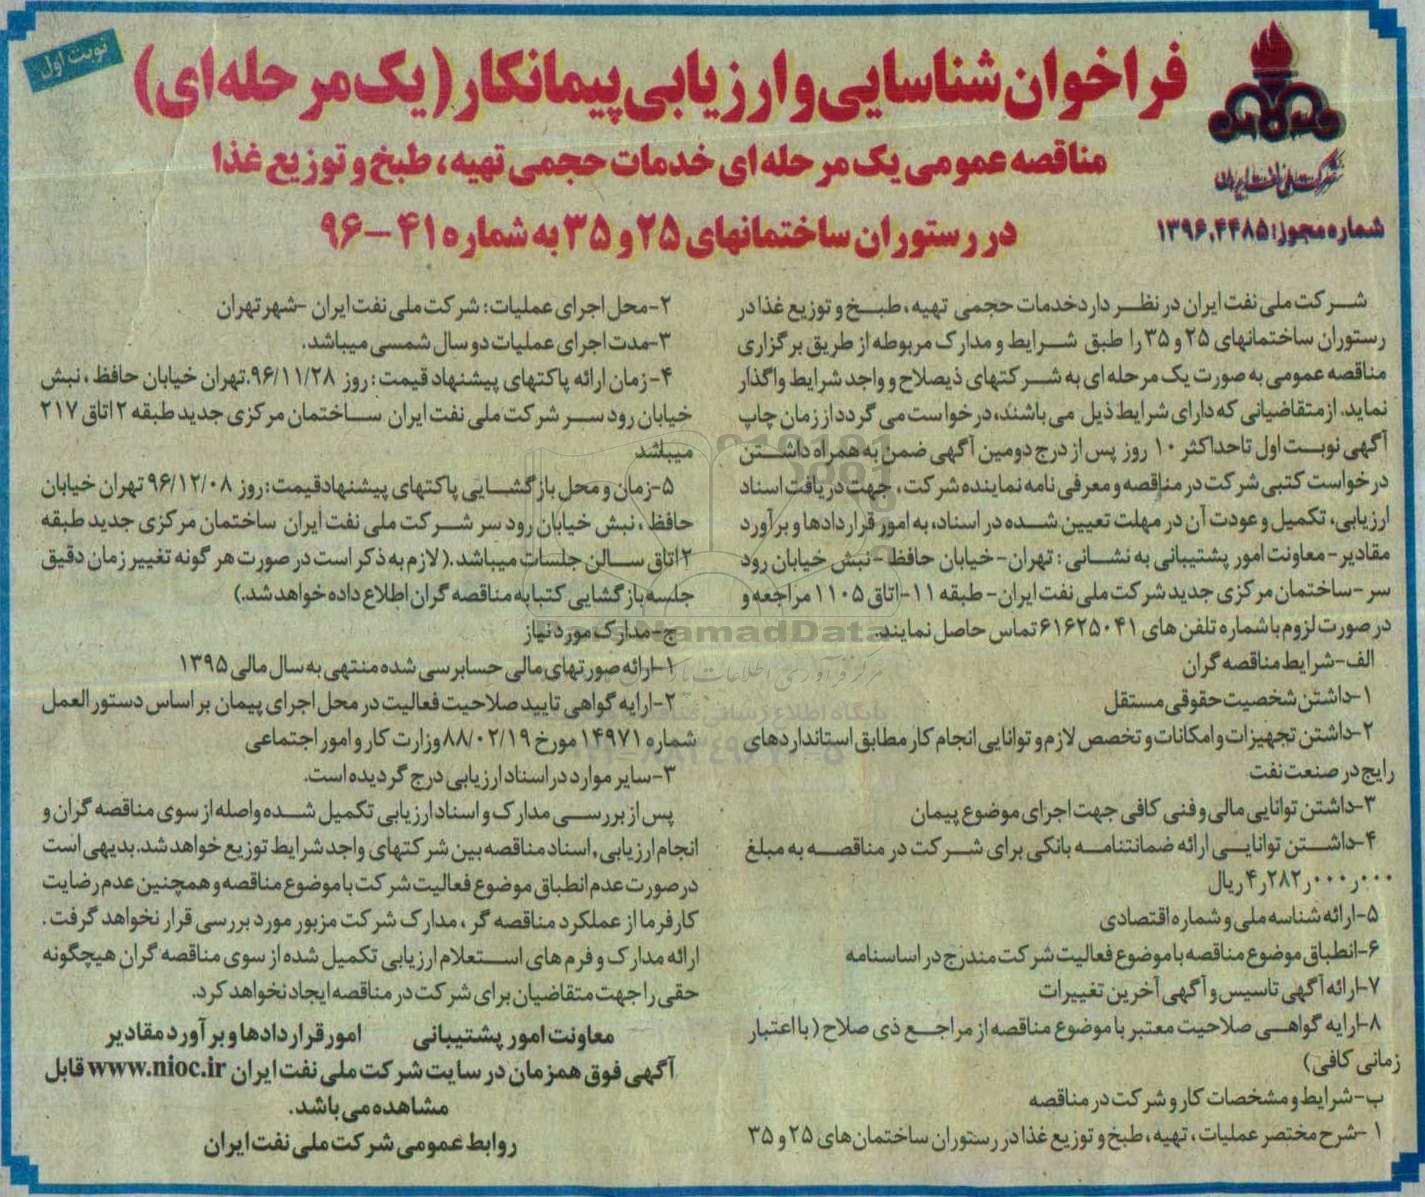 نوبت اول
فراخوان شناسایی و ارزیابی پیمانکار (یک مرحله ای)
مناقصه عمومی یک مرحله ای خدمات حجمی تهیه، طبخ و توزیع غذا
در رستوران ساختمانهای ۲۵ و ۳۵ به شماره ۴۱ – ۹۶
شرکت ملی نفت ایران
شماره مجوز: ۱۳۹۶,۴۴۸۵
شرکت ملی نفت ایران در نظر دارد خدمات حجمی تهیه، طبخ و توزیع غذا در
رستوران ساختمانهای ۲۵ و ۳۵ را طبق شرایط و مدارک مربوطه از طریق برگزاری
مناقصه عمومی به صورت یک مرحله ای به شرکتهای ذیصلاح و واجد شرایط واگذار
نماید. از متقاضیانی که دارای شرایط ذیل می باشند، درخواست می گردد از زمان چاپ
آگهی نوبت اول تا حداکثر ۱۰ روز پس از درج دومین آگهی ضمن به همراه داشتن
درخواست کتبی شرکت در مناقصه و معرفی نامه نماینده شرکت، جهت دریافت اسناد
ارزیابی، تکمیل و عودت آن در مهلت تعیین شده در اسناد، به امور قراردادها و برآورد
مقادیر - معاونت امور پشتیبانی به نشانی: تهران - خیابان حافظ - نبش خیابان رود
سر - ساختمان مرکزی جدید شرکت ملی نفت ایران - طبقه ۱۱ - اتاق ۱۱۰۵ مراجعه و
در صورت لزوم با شماره تلفن های ۶۱۶۲۵۰۴۱ تماس حاصل نمایند.
الف - شرایط مناقصه گران
۱- داشتن شخصیت حقوقی مستقل
۲- داشتن تجهیزات و امکانات و تخصص لازم و توانایی انجام کار مطابق استانداردهای
رایج در صنعت نفت
۳- داشتن توانایی مالی و فنی کافی جهت اجرای موضوع پیمان
۴- داشتن توانایی ارائه ضمانتنامه بانکی برای شرکت در مناقصه به مبلغ
۴ر۲۸۲ر۰۰۰ر۰۰۰ ریال
۵- ارائه شناسه ملی و شماره اقتصادی
۶- انطباق موضوع مناقصه با موضوع فعالیت شرکت مندرج در اساسنامه
۷- ارائه آگهی تاسیس و آگهی آخرین تغییرات
۸- ارایه گواهی صلاحیت معتبر با موضوع مناقصه از مراجع ذی صلاح (با اعتبار
زمانی کافی)
ب - شرایط و مشخصات کار و شرکت در مناقصه
۱- شرح مختصر عملیات، تهیه، طبخ و توزیع غذا در رستوران ساختمان های ۲۵ و ۳۵
۲- محل اجرای عملیات: شرکت ملی نفت ایران - شهر تهران
۳- مدت اجرای عملیات دو سال شمسی میباشد.
۴- زمان ارائه پاکتهای پیشنهاد قیمت: روز ۹۶/۱۱/۲۸. تهران خیابان حافظ، نبش
خیابان رود سر شرکت ملی نفت ایران ساختمان مرکزی جدید طبقه ۲ اتاق ۲۱۷
میباشد
۵- زمان و محل بازگشایی پاکتهای پیشنهاد قیمت: روز ۹۶/۱۲/۰۸ تهران خیابان
حافظ، نبش خیابان رود سر شرکت ملی نفت ایران ساختمان مرکزی جدید طبقه
۲ اتاق سالن جلسات میباشد. (لازم به ذکر است در صورت هر گونه تغییر زمان دقیق
جلسه بازگشایی کتبا به مناقصه گران اطلاع داده خواهد شد.)
ج - مدارک مورد نیاز
۱- ارائه صورتهای مالی حسابرسی شده منتهی به سال مالی ۱۳۹۵
۲- ارایه گواهی تایید صلاحیت فعالیت در محل اجرای پیمان بر اساس دستور العمل
شماره ۱۴۹۷۱ مورخ ۸۸/۰۲/۱۹ وزارت کار و امور اجتماعی
۳- سایر موارد در اسناد ارزیابی درج گردیده است.
پس از بررسی مدارک و اسناد ارزیابی تکمیل شده واصله از سوی مناقصه گران و
انجام ارزیابی, اسناد مناقصه بین شرکتهای واجد شرایط توزیع خواهد شد. بدیهی است
در صورت عدم انطباق موضوع فعالیت شرکت با موضوع مناقصه و همچنین عدم رضایت
کارفرما از عملکرد مناقصه گر، مدارک شرکت مزبور مورد بررسی قرار نخواهد گرفت.
ارائه مدارک و فرم های استعلام ارزیابی تکمیل شده از سوی مناقصه گران هیچگونه
حقی را جهت متقاضیان برای شرکت در مناقصه ایجاد نخواهد کرد.
معاونت امور پشتیبانی امور قراردادها و برآورد مقادیر
آگهی فوق همزمان در سایت شرکت ملی نفت ایران www.nioc.ir قابل
مشاهده می باشد.
روابط عمومی شرکت ملی نفت ایران